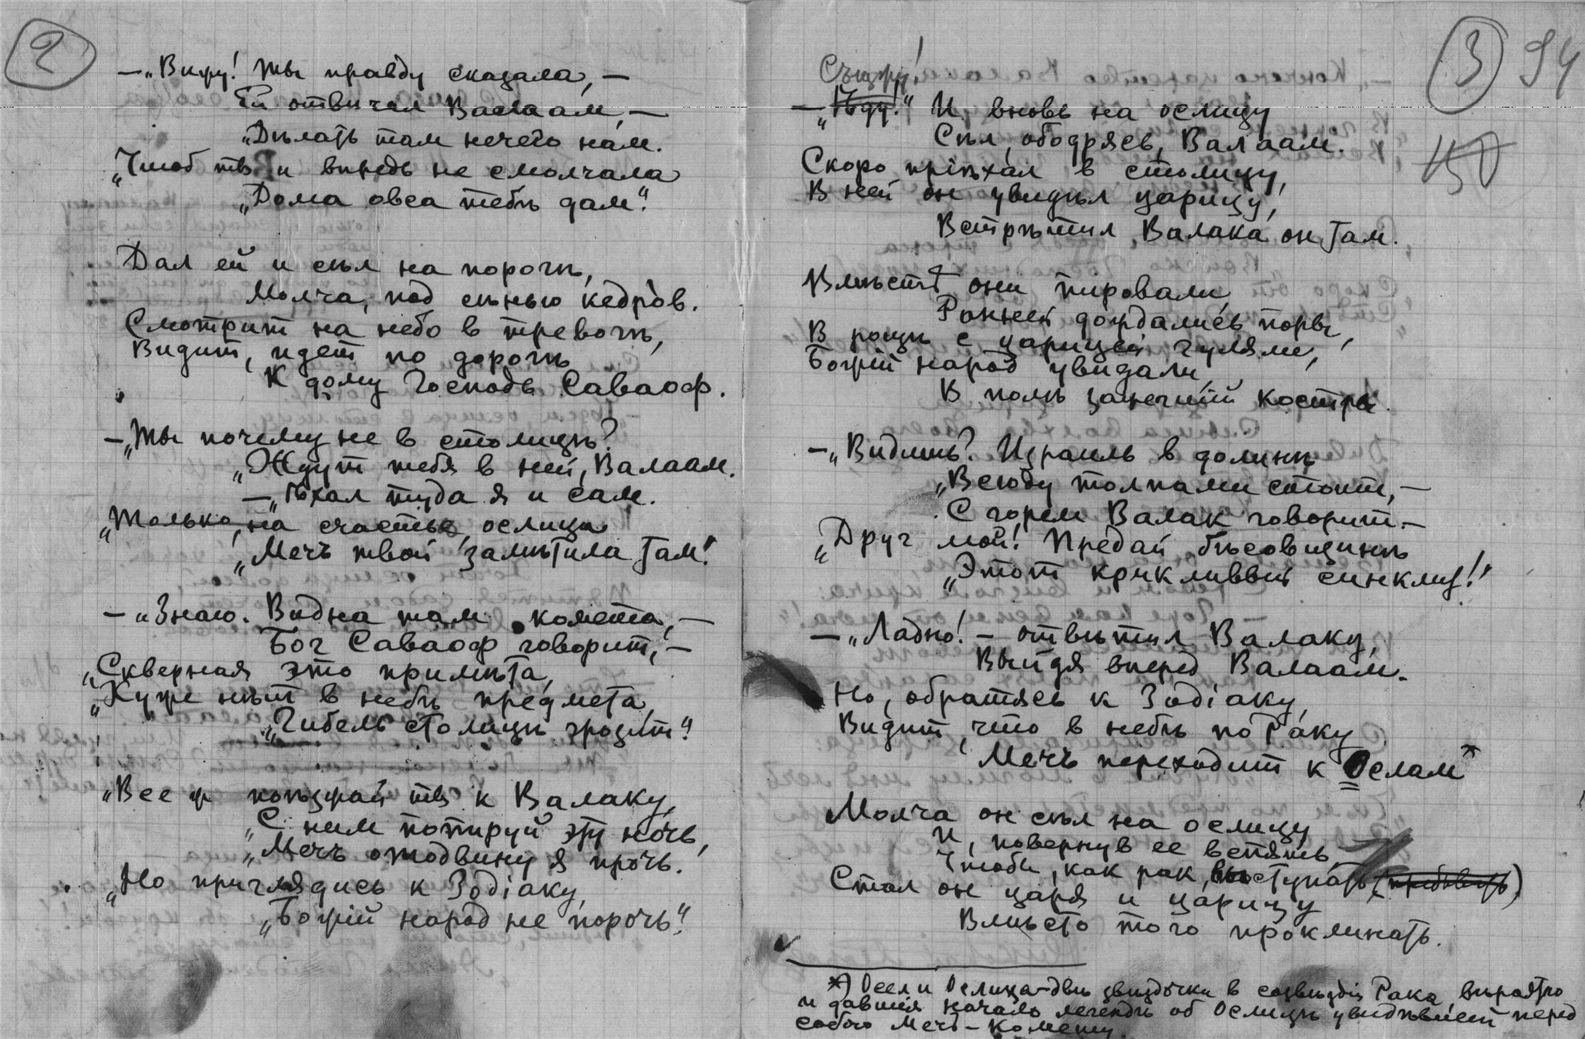 2
— „Вижу! Ты правду сказала, —
Ей отвѣчал Валаам, —
„Дѣлать там нечего нам.
„Чтоб ты и впредь не смолчала
„Дома овса тебѣ дам“.
Дал ей и сѣл на порогѣ,
Молча, под сѣнью кедров.
Смотрит на небо в тревогѣ,
Видит, идет по дорогѣ
К дому Господь Саваоф.
— „Ты почему не в столицѣ?
„Ждут тебя в ней, Валаам.
— „Ѣхал туда я и сам.
„Только, на счастье, ослица
„Мечъ твой замѣтила там!
— „Знаю. Видна там комета, —
Бог Саваоф говорит, —
„Скверная это примѣта,
„Хуже нѣт в небѣ предмета,
„Гибель столицѣ грозит“.
„Все ж поѣзжай ты к Валаку,
„С ним попируй эту ночь,
„Мечъ отодвину я прочь.
„Но приглядись к Зодіаку,
„Божій народ не порочь“.
3 94
150
Съѣзжу!
— „Ѣду!“ И вновь на ослицу
Сѣл, ободрясь, Валаам.
Скоро пріѣхал в столицу,
В ней он увидѣл царицу,
Встрѣтил Валака он там.
Вмѣстѣ они пировали
Ранней дождались поры,
В рощѣ с царицей гуляли,
Божій народ увидали
В полѣ зажегшій костры.
— „Видишь? Израиль в долинѣ
„Всюду толпами стоит, —
С горем Валак говорит. —
„Друг мой! Предай бѣсовщинѣ
„Этот крикливый синклит!“
— „Ладно! — отвѣтил Валаку,
Выйдя вперед Валаам.
Но, обратясь к Зодіаку,
Видит, что в небѣ по Раку
Мечъ переходит к Ослам*
Молча он сѣл на ослицу
И, повернув ее вспять,
Чтобы, как рак, выступать,
Стал он царя и царицу
Вмѣсто того проклинать.
*) Осел и Ослица — двѣ звѣздочки в созвѣздіи Рака, вѣроятно
и давшія начало легендѣ об Ослицѣ увидѣвшей перед
собою Мечъ — Комету.